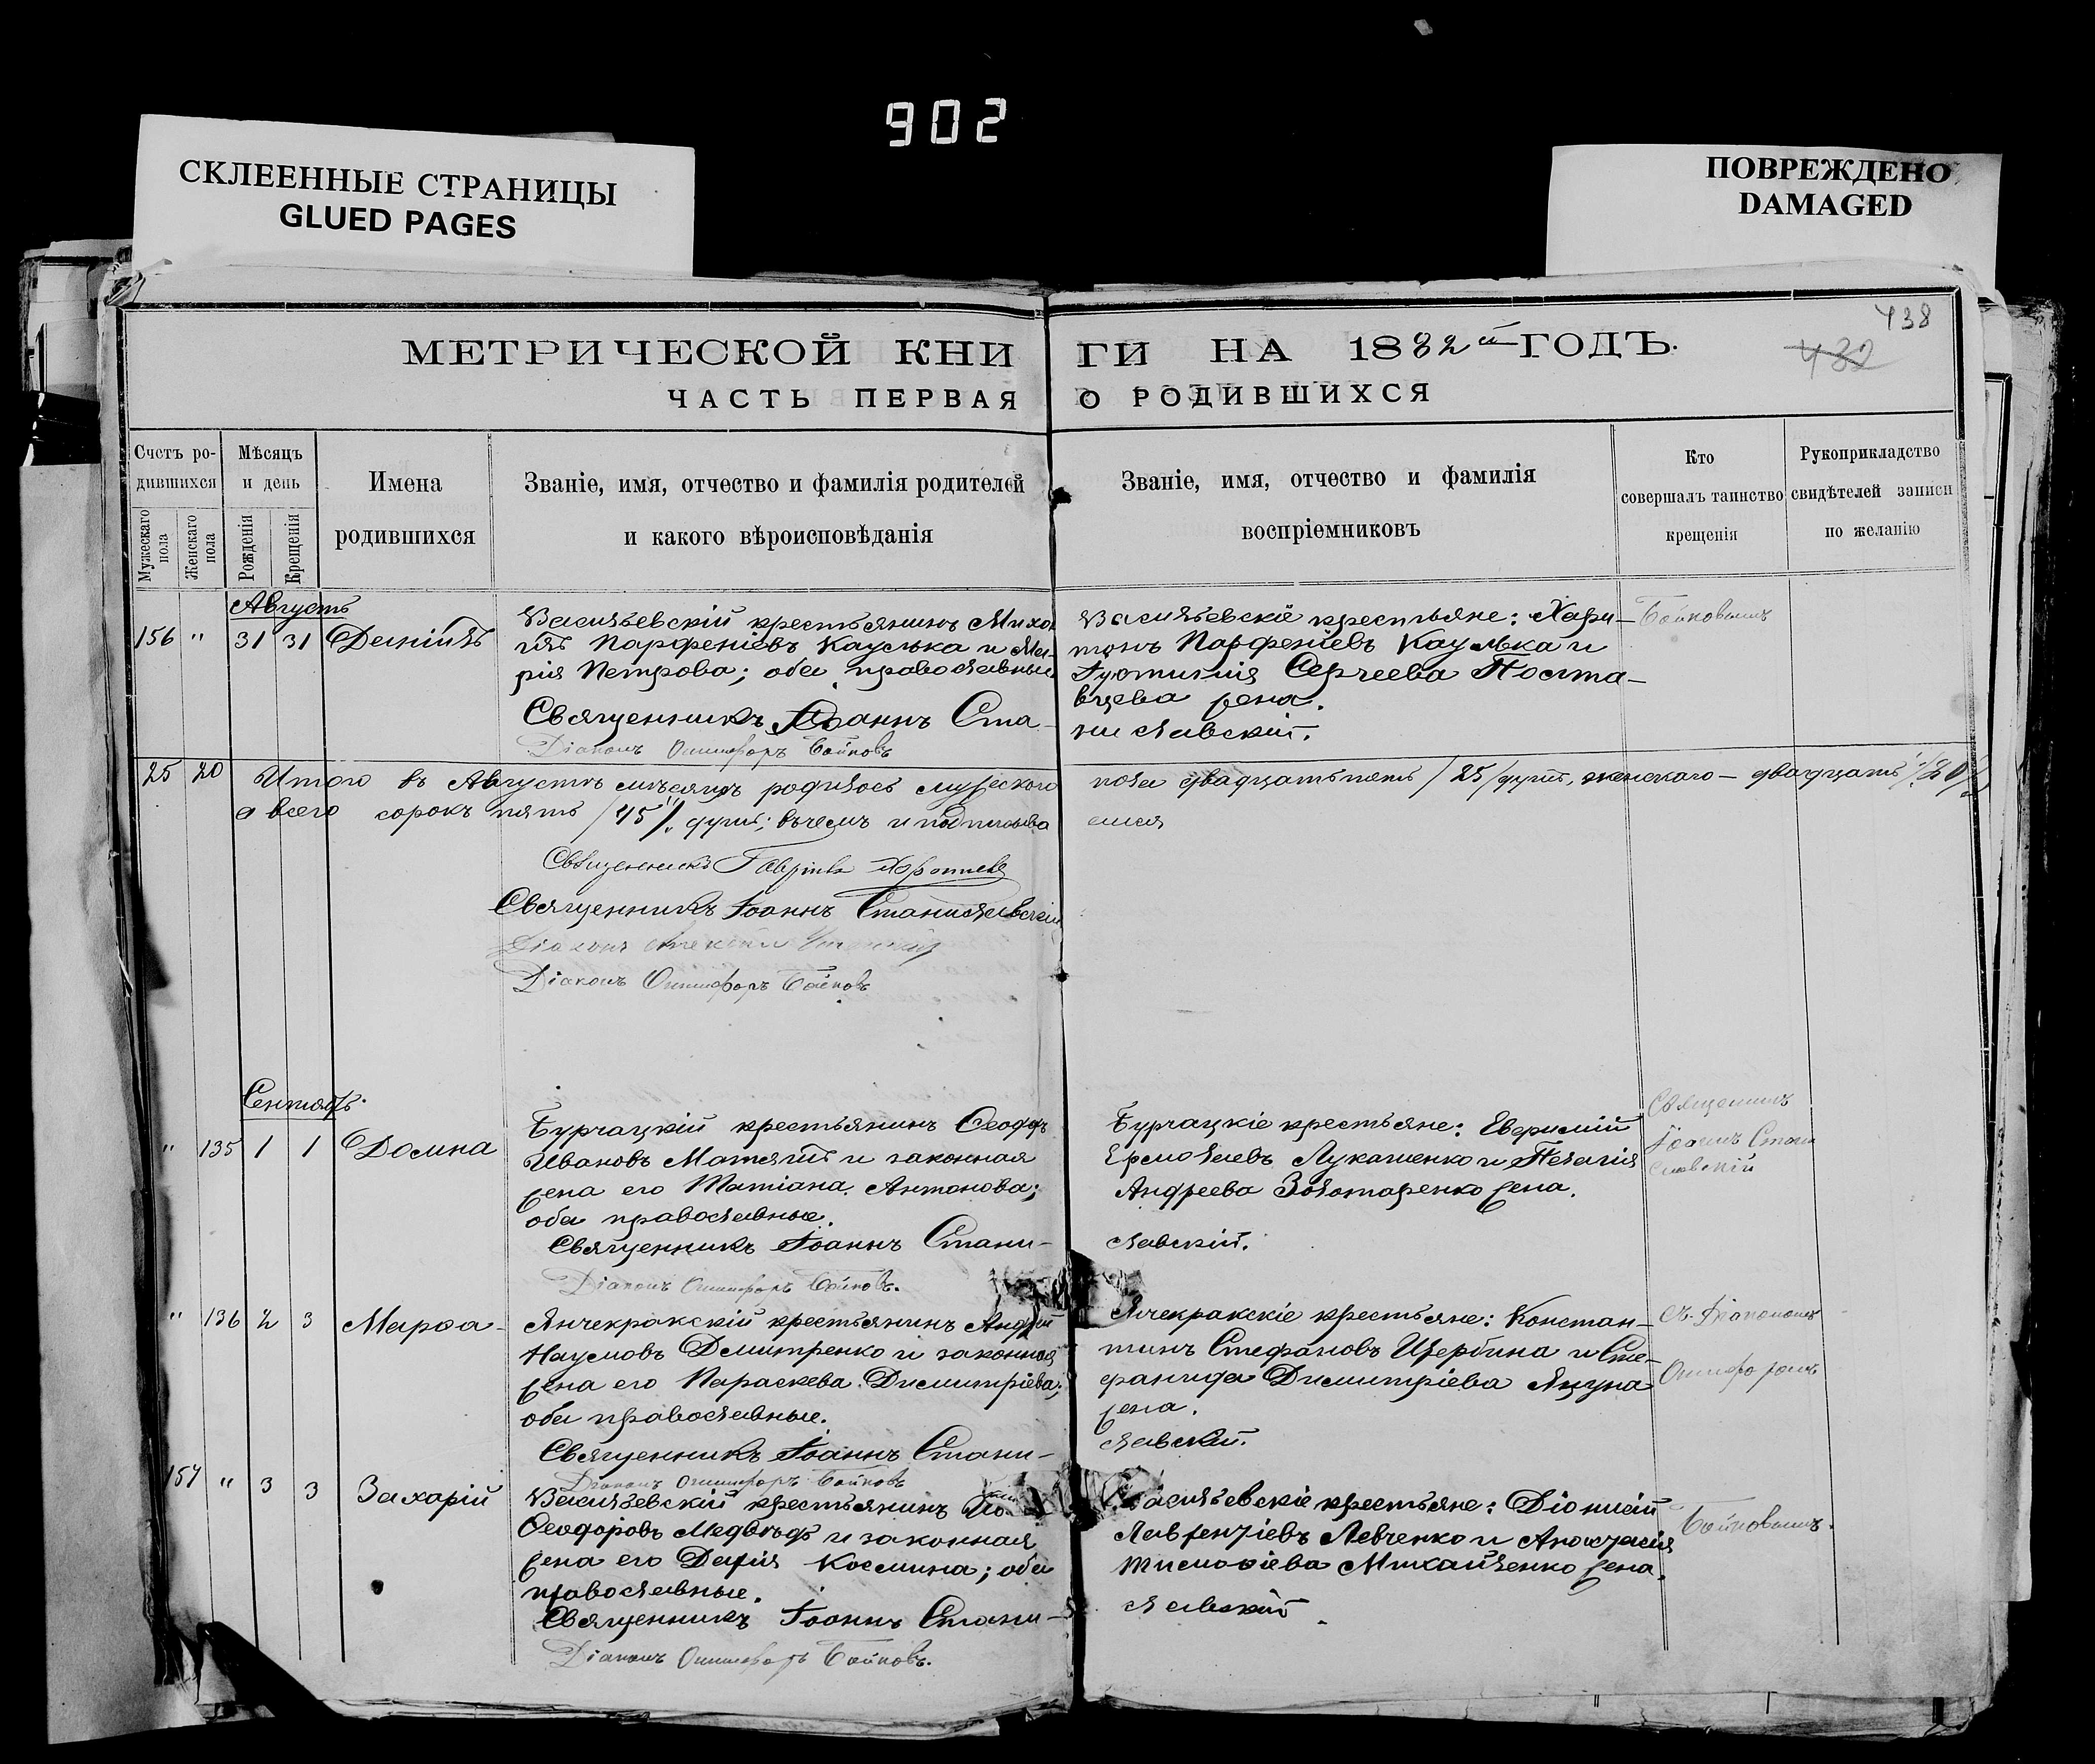 902
СКЛЕЕННЫЕ СТРАНИЦЫ
GLUED PAGES
ПОВРЕЖДЕНО
DAMAGED
438
432
МЕТРИЧЕСКОЙ КНИ ГИ НА 1882й ГОДЪ.
ЧАСТЬ ПЕРВАЯ О РОДИВШИХСЯ
Счетъ ро-
дившихся
Мужескаго пола
Женскаго пола
Мѣсяцъ
и день
Рожденія
Крещенія
Имена
родившихся
Званіе, имя, отчество и фамилія родителей
и какого вѣроисповѣданія
Званіе, имя, отчество и фамилія
воспріемниковъ
Кто
совершалъ таинство
крещенія
Рукоприкладство
свидѣтелей записи
по желанію
Августъ
156 " 31 31 Даніилъ
Васильевскій крестьянинъ Миха
илъ Парфеніевъ Кауська и Ма-
рія Петрова; оба православные
Священникъ Іоаннъ Ста-
Діаконъ Онисифоръ Бойковъ
Васильевскіе крестьяне: Хари-
тонъ Парфеніевъ Кауська и
Іустинія Сергеева Поста-
вцева жена.
ниславскій.
Бойковымъ
25 20 Итого въ Августѣ мѣсяцѣ родилось мужеского пола двадцать пять /25/ душъ, женскаго — двадцать /20/
а всего сорокъ пять /45/ душъ; въ чемъ и подписыва емся
Священникъ Гавріилъ
Священникъ Іоаннъ Станиславскій
Діаконъ Алексій
Діаконъ Онисифоръ Бойковъ
Сентябрь.
" 135 1 1 Домна
Бурчацкій крестьянинъ Ѳеодоръ
Ивановъ Матяшъ и законная
жена его Татіана Антонова;
оба православные.
Священникъ Іоаннъ Стани-
Діаконъ Онисифоръ Бойковъ.
Бурчацкіе крестьяне: Евфимій
Ермолаевъ Лукашенко и Пелагія
Андреева Золотаренко жена.
славскій.
Священникъ
Іоаннъ Стани
славскій
" 136 2 3 Марѳа
Янчекракскій крестьянинъ Андрей
Наумовъ Дмитренко и законная
жена его Параскева Димитріева;
оба православные.
Священникъ Іоаннъ Стани-
Діаконъ Онисифоръ Бойковъ
Янчекракскіе крестьяне: Констан-
тинъ Стефановъ Щербина и Сте-
фанида Димитріева Яцуна
жена.
славскій.
съ Діакономъ
Онисифоромъ
157 " 3 3 Захарій
Васильевскій крестьянинъ
Ѳеодоровъ Медвѣдь и законная
жена его Дарія Космина; оба
православные.
Священникъ Іоаннъ Стани-
Діаконъ Онисифоръ Бойковъ.
Васильевскіе крестьяне: Діонисій
Лаврентіевъ Левченко и Анастасія
Тимоѳіева Михайленко жена.
славскій
Бойковымъ.